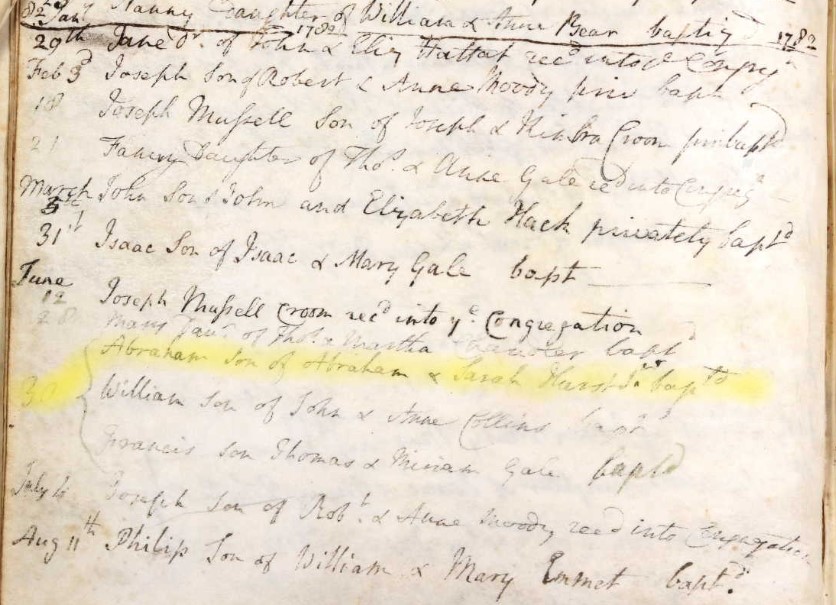 Nanny Daughter of William & Anne Bear baptiz'd 1782
29th Jane Dr. of John & Eliz Hattat recd into ye Congn
Feb 3d Joseph Son of Robert & Anne Moody priv bapt
18 Joseph Mussell Son of Joseph & Croom priv bapt
21 Fanny Daughter of Thos. & Anne Gale recd into Congn
March 3d John Son of John and Elizabeth Hack privately bapt'd
31st Isaac Son of Isaac & Mary Gale bapt
June
12 Joseph Mussell Croom recd into ye Congregation
28 Mary Daur of Thos. & Martha bapt
Abraham Son of Abraham & Sarah Hurst bapt'd
30 William Son of John & Anne Collins bapt
Francis Son Thomas & Miriam Gale bapt'd
July 4 Joseph Son of Robt. & Anne Moody recd into Congregation
Aug 11th Philip Son of William & Mary Emmet bapt'd